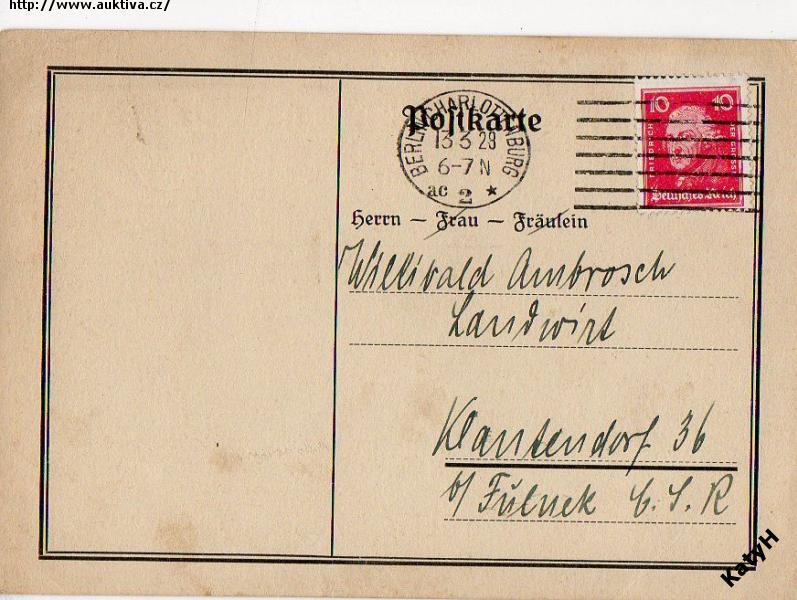 http://www.auktiva.cz/
Postkarte
BERLIN-CHARLOTTENBURG
13 3 29
6-7 N
ac 2 *
10 10
FRIEDRICH DER GROSSE
Deutsches Reich
Herrn – Frau – Fräulein
Willibald Ambrosch
Landwirt
Klantendorf 36
b/ Fulnek C.S.R
KatyH